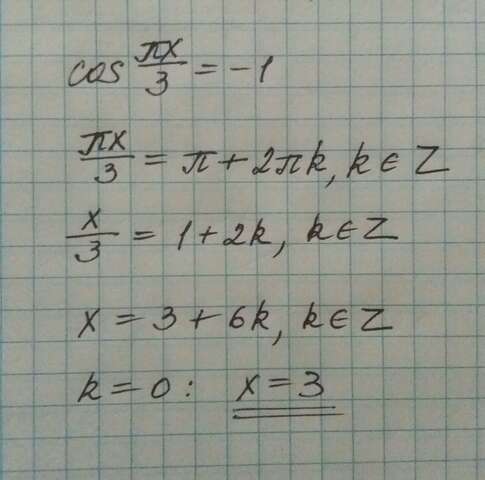 cos πx/3 = -1
πx/3 = π + 2πk, k ∈ Z
x/3 = 1 + 2k, k ∈ Z
x = 3 + 6k, k ∈ Z
k = 0 : x = 3